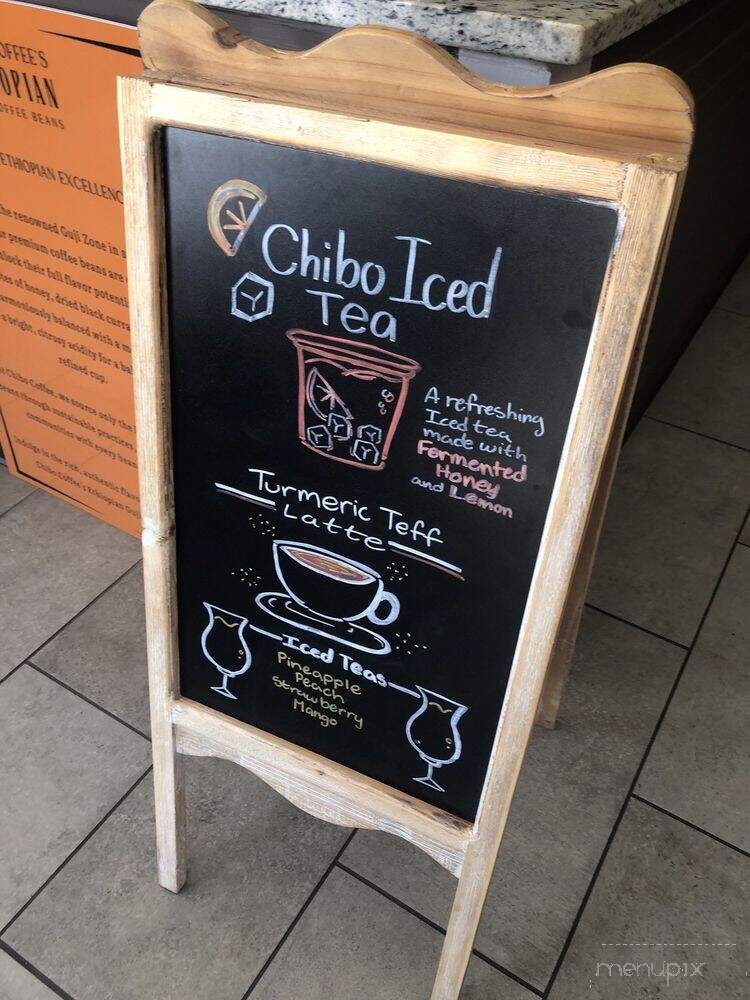 OFFEE'S
OPIAN
OFFEE BEANS
ETHIOPIAN EXCELLENC
he renowned Guji Zone in s
r premium coffee beans are
lock their full flavor potenti
es of honey, dried black curra
armoniously balanced with a m
a bright, citrusy acidity for a bal
refined cup.
t Chibo Coffee, we source only the
beans through sustainable practices,
communities with every bean
Indulge in the rich, authentic flavo
Chibo Coffee's Ethiopian Guji
Chibo Iced
Tea
A refreshing
Iced tea
made with
Fermented
Honey
and Lemon
Turmeric Teff
Latte
Iced Teas
Pineapple
Peach
Strawberry
Mango
menupix